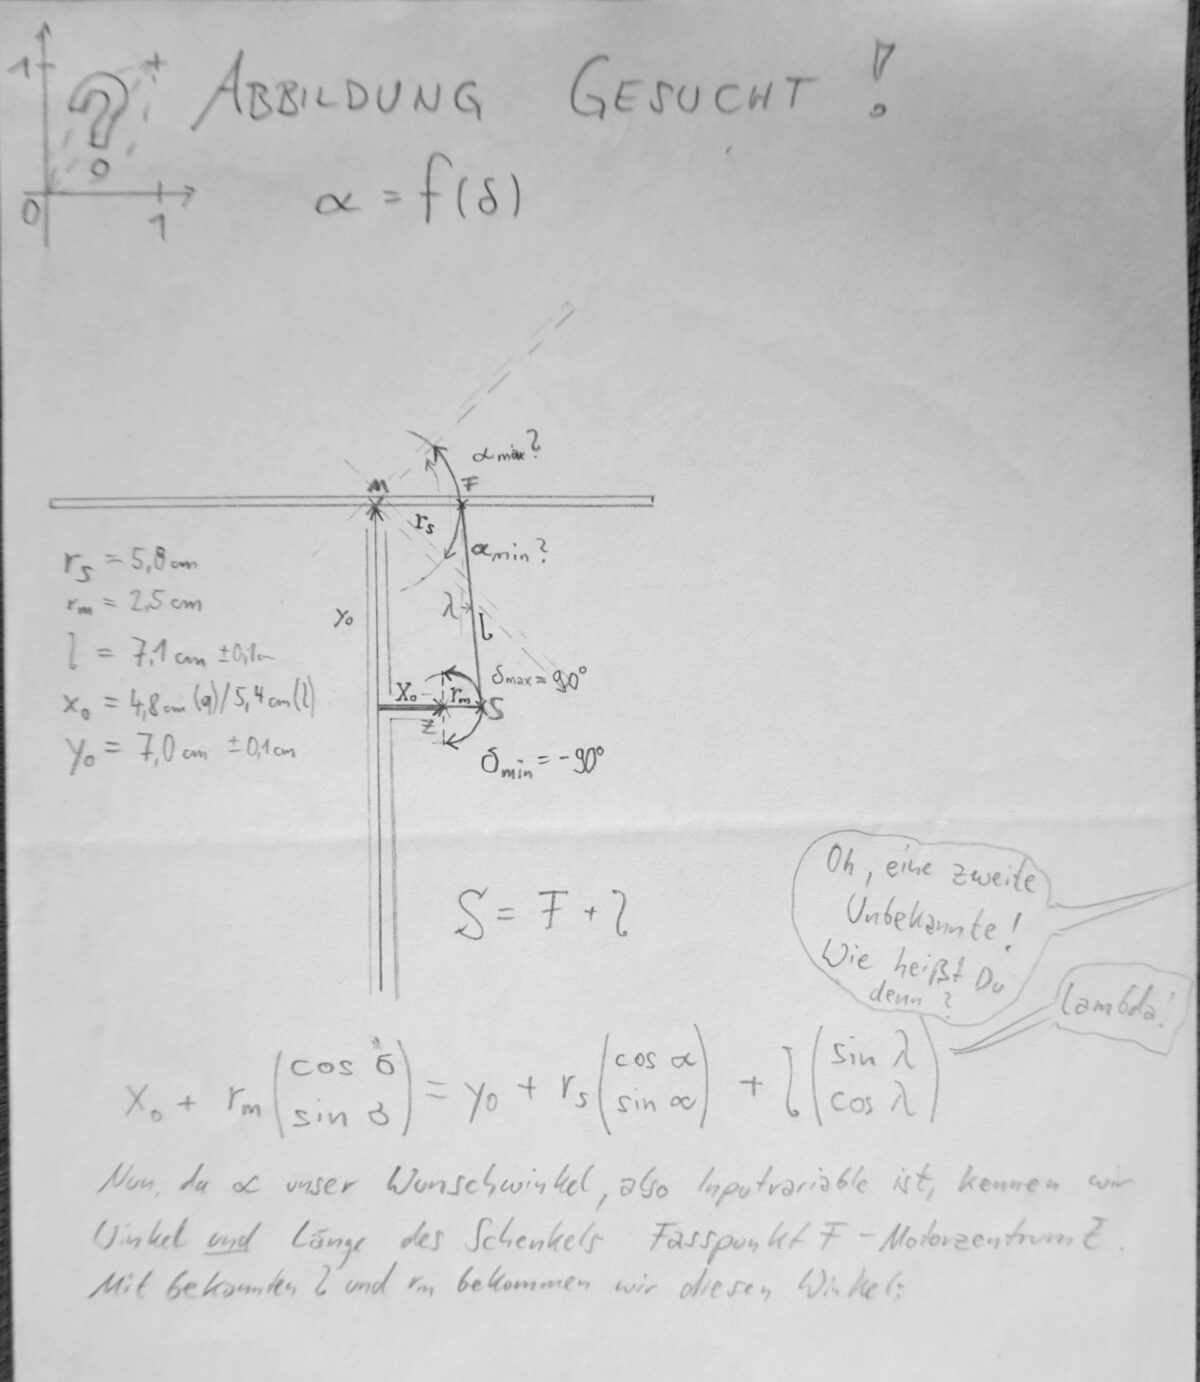 1
?
0
1
ABBILDUNG GESUCHT!
α = f(δ)
α max?
M
F
r_s
α min?
r_s = 5,8 cm
r_m = 2,5 cm
l = 7,1 cm ±0,1cm
x_0 = 4,8cm (q)/5,4cm(l)
y_0 = 7,0 cm ±0,1cm
y_0
λ
l
δ_max = 90°
x_0
r_m
S
Z
δ_min = -90°
S = F + l
Oh, eine zweite
Unbekannte!
Wie heißt Du
denn?
Lambda!
x_0 + r_m (cos δ sin δ) = y_0 + r_s (cos α sin α) + l (sin λ cos λ)
Nun, da α unser Wunschwinkel, also Inputvariable ist, kennen wir
Winkel und Länge des Schenkels Fasspunkt F - Motorzentrum Z.
Mit bekannten l und r_m bekommen wir diesen Winkel: